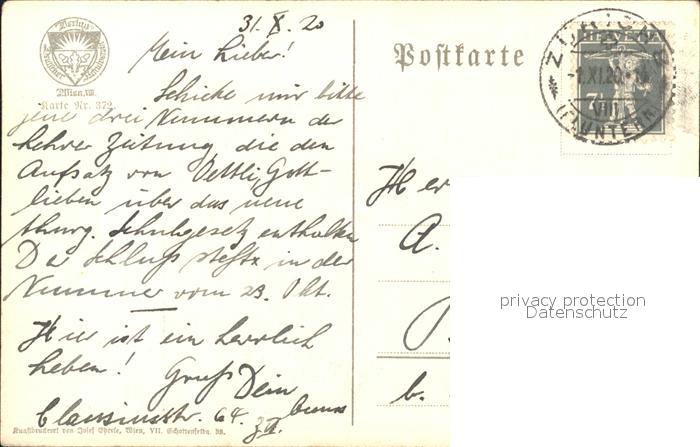 31. X. 20
Mein Lieber!
Schicke mir bitte
jene drei Nummern der
Lehrer Zeitung, die den
Aufsatz von Oettli, Gott-
lieben über das neue
thurg. Schulgesetz enthalten
Der Schluss steht in der
Nummer vom 23. Okt.
Hier ist ein herrlich
Leben!
Gruss Dein
Clausiusstr. 64.
Wien, VIII.
Karte Nr. 372
Kunstdruckerei von Josef Eberle, Wien, VII. Schottenfeldg. 38.
Postkarte
HELVETIA
7½
ZÜRICH
-1.XI.20.
VIII
(FLUNTERN)
Her
A.
b.
privacy protection
Datenschutz